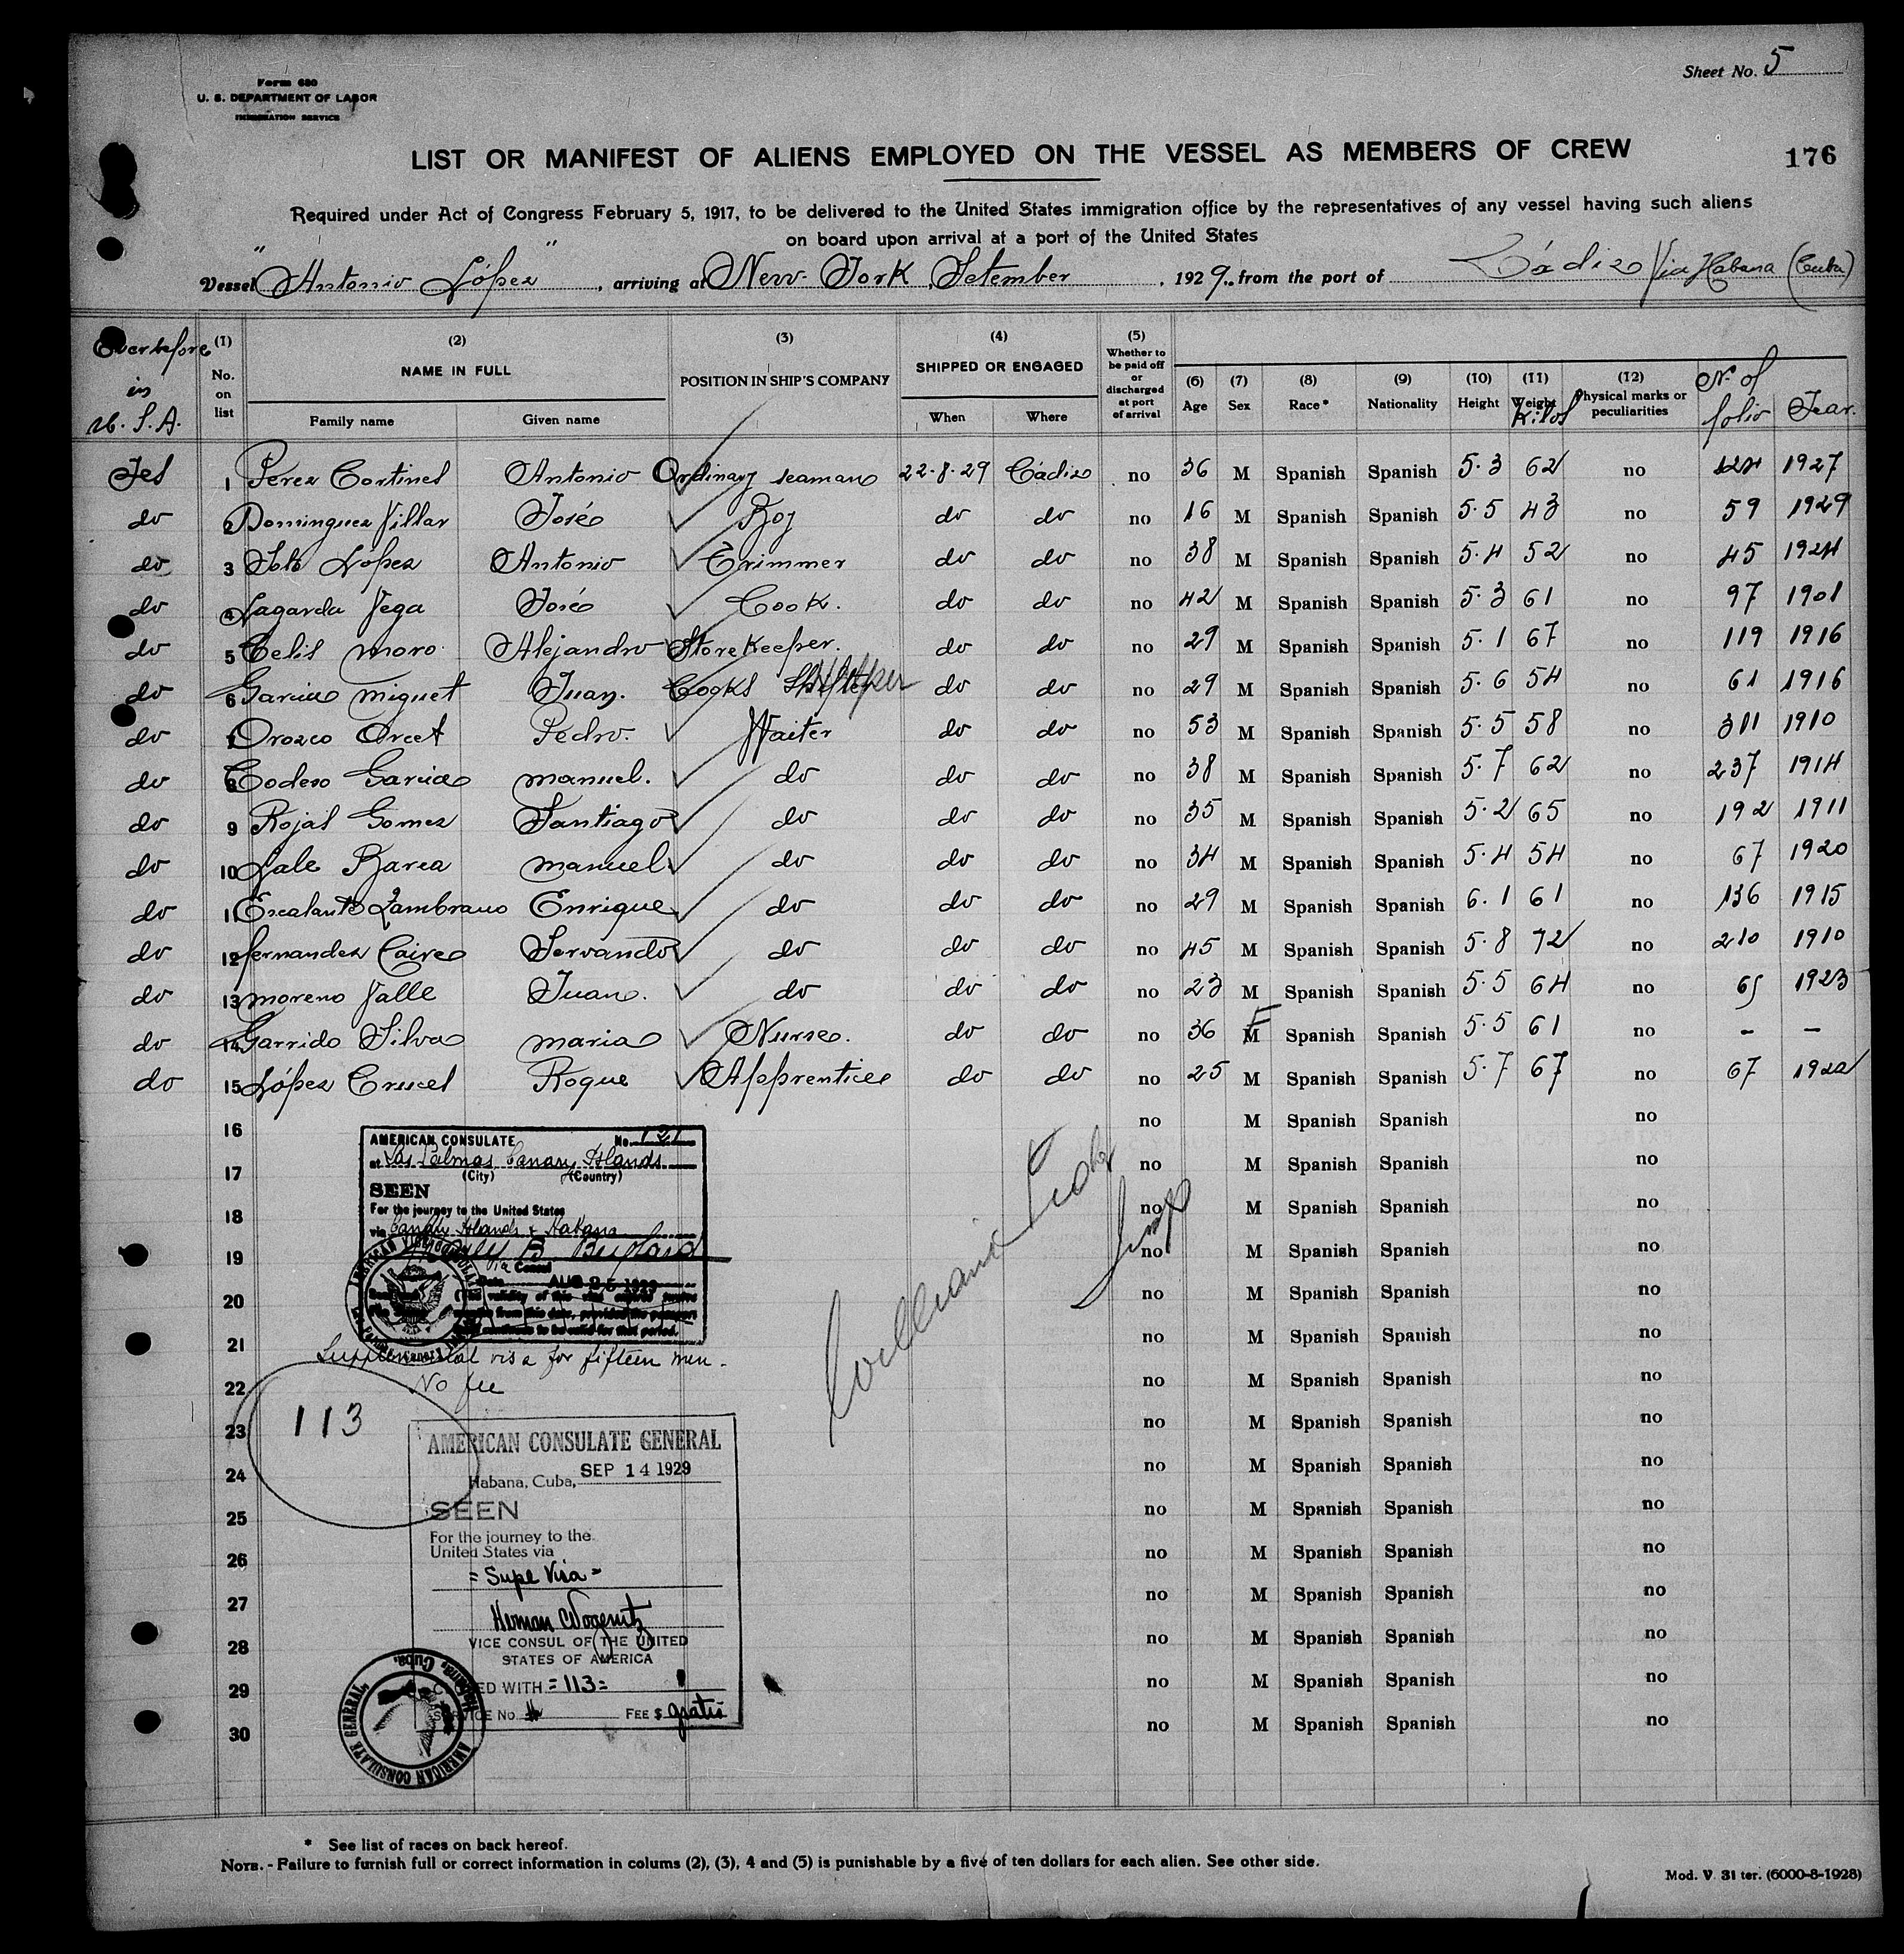 Form 680
U. S. DEPARTMENT OF LABOR
IMMIGRATION SERVICE
Sheet No. 5
LIST OR MANIFEST OF ALIENS EMPLOYED ON THE VESSEL AS MEMBERS OF CREW
176
Required under Act of Congress February 5, 1917, to be delivered to the United States immigration office by the representatives of any vessel having such aliens
on board upon arrival at a port of the United States
Vessel "Antonio López", arriving at New-York, Setember, 1929.. from the port of Cádiz Via Habana (Cuba)
Ever before in U. S. A. (1) No. on list (2) NAME IN FULL Family name Given name (3) POSITION IN SHIP'S COMPANY (4) SHIPPED OR ENGAGED When Where (5) Whether to be paid off or discharged at port of arrival (6) Age (7) Sex (8) Race* (9) Nationality (10) Height (11) Weight Kilos (12) Physical marks or peculiarities Nº of folio Year.
Yes 1 Perez Cortines Antonio Ordinary seaman 22-8-29 Cádiz no 36 M Spanish Spanish 5.3 62 no 124 1927
do 2 Dominguez Villar José Boy do do no 16 M Spanish Spanish 5.5 43 no 59 1929
do 3 Soto López Antonio Trimmer do do no 38 M Spanish Spanish 5.4 52 no 45 1924
do 4 Lagarda Vega José Cook. do do no 42 M Spanish Spanish 5.3 61 no 97 1901
do 5 Celis Moro Alejandro Storekeeper. do do no 29 M Spanish Spanish 5.1 67 no 119 1916
do 6 Garcia Miguet Juan. Cooks do do no 29 M Spanish Spanish 5.6 54 no 61 1916
do 7 Orozco Orcet Pedro. Waiter do do no 53 M Spanish Spanish 5.5 58 no 311 1910
do 8 Codeso Garcia Manuel. do do do no 38 M Spanish Spanish 5.7 62 no 237 1914
do 9 Rojas Gomez Santiago do do do no 35 M Spanish Spanish 5.2 65 no 192 1911
do 10 Lale Barea Manuel do do do no 34 M Spanish Spanish 5.4 54 no 67 1920
do 11 Escalante Zambrano Enrique do do do no 29 M Spanish Spanish 6.1 61 no 136 1915
do 12 Fernandez Caire Servando do do do no 45 M Spanish Spanish 5.8 72 no 210 1910
do 13 Moreno Valle Juan. do do do no 23 M Spanish Spanish 5.5 64 no 65 1923
do 14 Garrido Silva Maria Nurse. do do no 36 F M Spanish Spanish 5.5 61 no - -
do 15 López Cruces Roque Apprentice do do no 25 M Spanish Spanish 5.7 67 no 67 1922
16 no M Spanish Spanish no
17 no M Spanish Spanish no
18 no M Spanish Spanish no
19 no M Spanish Spanish no
20 no M Spanish Spanish no
21 no M Spanish Spanish no
22 no M Spanish Spanish no
23 no M Spanish Spanish no
24 no M Spanish Spanish no
25 no M Spanish Spanish no
26 no M Spanish Spanish no
27 no M Spanish Spanish no
28 no M Spanish Spanish no
29 no M Spanish Spanish no
30 no M Spanish Spanish no
AMERICAN CONSULATE No. 121
at Las Palmas Canary Islands
(City) (Country)
SEEN
For the journey to the United States
via Canary Islands & Habana
B. Buffard
Consul
Date AUG 25 1929
Supplemental visa for fifteen men.
No fee
113
AMERICAN CONSULATE GENERAL
Habana, Cuba, SEP 14 1929
SEEN
For the journey to the
United States via
= Supl Visa =
VICE CONSUL OF THE UNITED
STATES OF AMERICA
WITH =113=
SERVICE No. FEE $ gratis
AMERICAN CONSULATE GENERAL, Habana, Cuba.
* See list of races on back hereof.
NOTE. - Failure to furnish full or correct information in colums (2), (3), 4 and (5) is punishable by a five of ten dollars for each alien. See other side.
Mod. V 31 ter. (6000-8-1928)